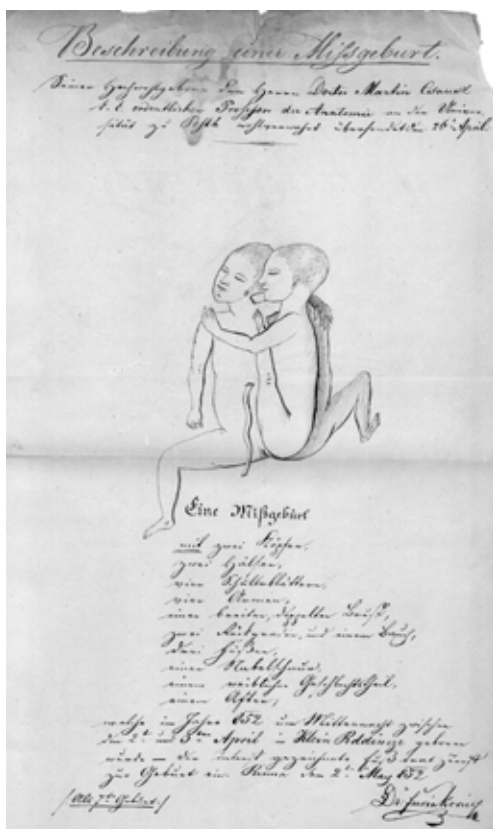 Beschreibung einer Mißgeburt.
Seiner Hochwohlgeboren dem Herrn Doctor Martin Csausz
k. k. ordentlichen Professor der Anatomie an der Univer-
sität zu Pesth wohlverwahrt übersendet den 26t April.
Eine Mißgeburt
mit zwei Köpfen,
zwei Hälsen,
vier Schulterblättern,
vier Armen,
einer breiten, doppelten Brust,
zwei und einem Bauch,
drei Füßen,
einer Nabelschnur,
einem weiblichen Geschlechtstheil,
einem After,
welche im Jahre 852 um Mitternacht zwischen
den 2t und 3ten April in Klein geboren
wurde – die gezeichnete Fuß trat zuerst
zur Geburt ein. den 2t May 852.
/Als 7te Geburt./
Dr